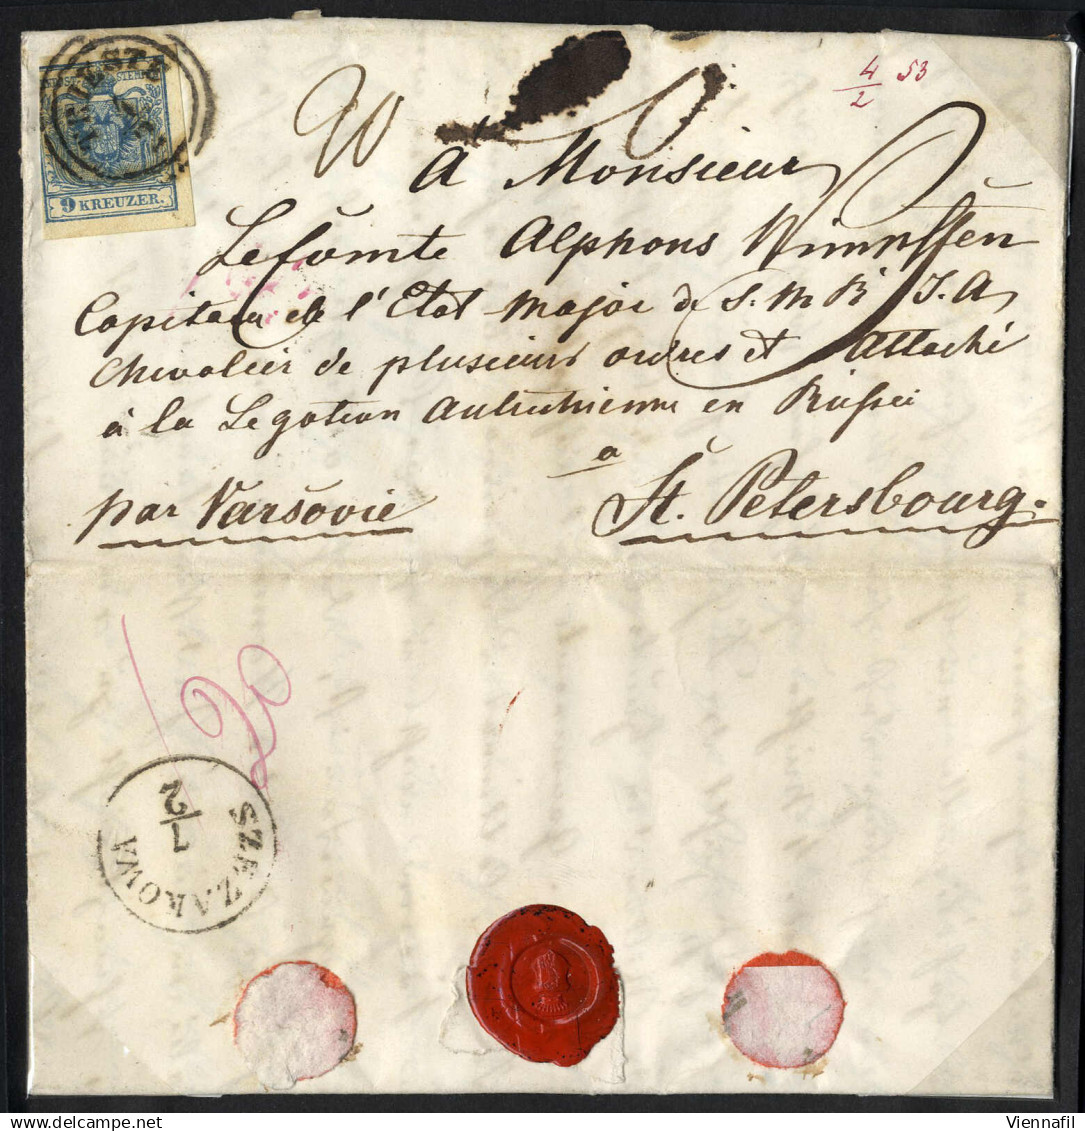 TRIESTE
9 KREUZER.
4/2 53
A Monsieur
Le Comte Alphons Wimpffen
Capitain de l'Etat Major de S. M. R. I. A.
Chevalier de plusieurs ordres et Attaché
à la Legation Autrichienne en Russie
a
par Varsovie St. Petersbourg.
SZEZAKOWA
7/2
Viennafil